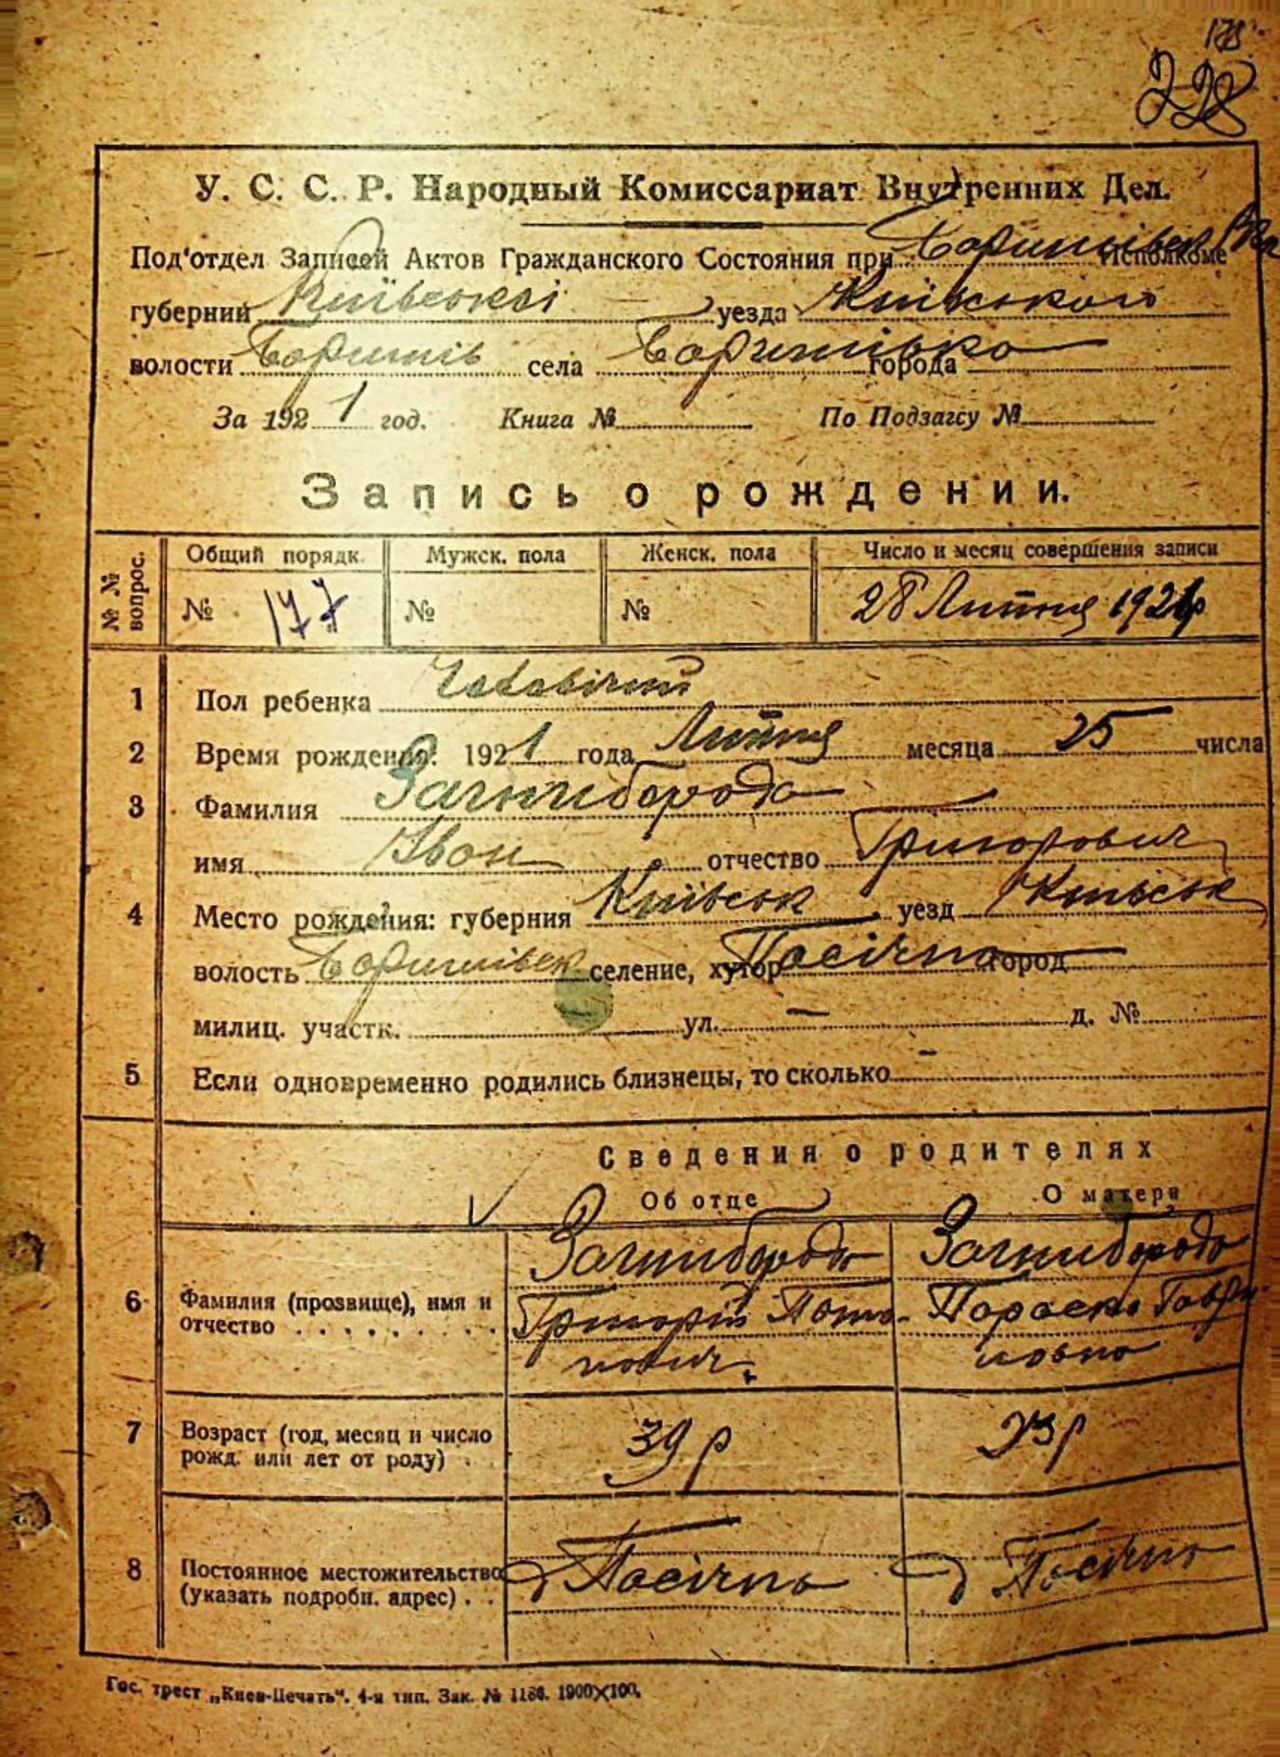 178
228
У. С. С. Р. Народный Комиссариат Внутренних Дел.
Под'отдел Записей Актов Гражданского Состояния при Исполкоме
губерний Київської уезда Київського
волости села города
За 1921 год. Книга № По Подзагсу №
Запись о рождении.
№ № вопрос. Общий порядк. Мужск. пола Женск. пола Число и месяц совершения записи
№ 177 № № 28 Лютня 1921р
1 Пол ребенка
2 Время рождения: 1921 года Лютня месяца 25 числа
3 Фамилия Загниборода
имя Іван отчество Григорович
4 Место рождения: губерния Київськ уезд Київськ
волость селение, хутор Пасічна город
милиц. участк. ул. – д. №
5 Если одновременно родились близнецы, то сколько –
Сведения о родителях
Об отце О матери
Загниборода Загниборода
6 Фамилия (прозвище), имя и отчество . . . . . . . . . Григорій Параска
7 Возраст (год, месяц и число рожд. или лет от роду) . 39 р 23 р
8 Постоянное местожительство (указать подробн. адрес) . . д Пасічна д Пасічна
Гос. трест „Киев-Печать". 4-я тип. Зак. № 1186. 1900×100.